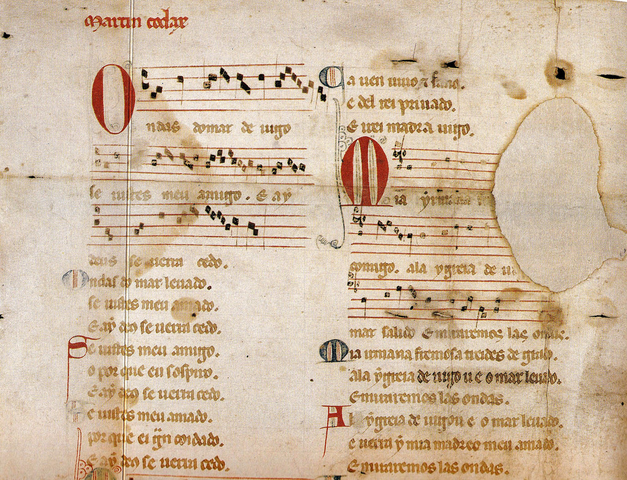 Martin codax
Ondas do mar de uigo
se uistes meu amigo. E ay
deus se uerra cedo.
Ondas do mar leuado.
se uistes meu amado.
E ay deo se uerra cedo.
Se uistes meu amigo.
o por que eu sospiro.
E ay deo se uerra cedo.
Se uistes meu amado.
por que ei gñ coidado.
E ay deo se uerra cedo.
Ca uen uiuo z sano.
e del rei priuado.
E irei madra uigo.
Mia
comigo. ala ygreia de u
mar salido E miraremos las ondas.
Mia irmana fremosa treides de grado.
Ala ygreia de uigo u e o mar leuado.
E miraremos las ondas.
A la ygreia de uigo u e o mar leuado.
e uerra y mia madre o meu amado.
E miraremos las ondas.